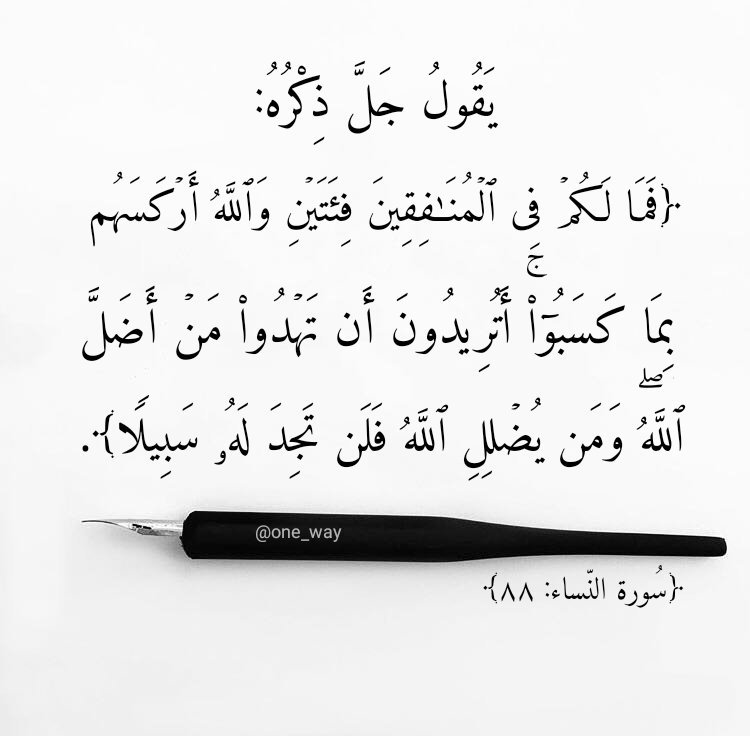 يَقُولُ جَلَّ ذِكْرُهُ:
{فَمَا لَكُمۡ فِى ٱلۡمُنَـٰفِقِينَ فِئَتَيۡنِ وَٱللَّهُ أَرۡكَسَهُم
بِمَا كَسَبُوٓا۟ۚ أَتُرِيدُونَ أَن تَهۡدُوا۟ مَنۡ أَضَلَّ
ٱللَّهُۖ وَمَن يُضۡلِلِ ٱللَّهُ فَلَن تَجِدَ لَهُۥ سَبِيلًا}.
@one_way
{سُورة النّساء: ٨٨}